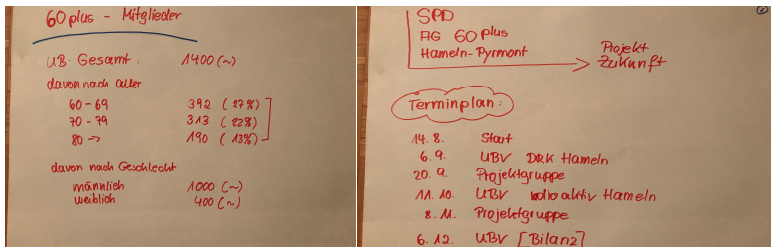 60 plus - Mitglieder
UB-Gesamt: 1400 (~)
davon nach Alter
60 - 69 392 (27%)
70 - 79 313 (22%)
80 -> 190 (13%)
davon nach Geschlecht
männlich 1000 (~)
weiblich 400 (~)
SPD
AG 60 plus
Hameln-Pyrmont
Projekt
Zukunft
Terminplan:
14.8. Start
6.9. UBV DRK Hameln
20.9. Projektgruppe
11.10. UBV radioaktiv Hameln
8.11. Projektgruppe
6.12. UBV [Bilanz]